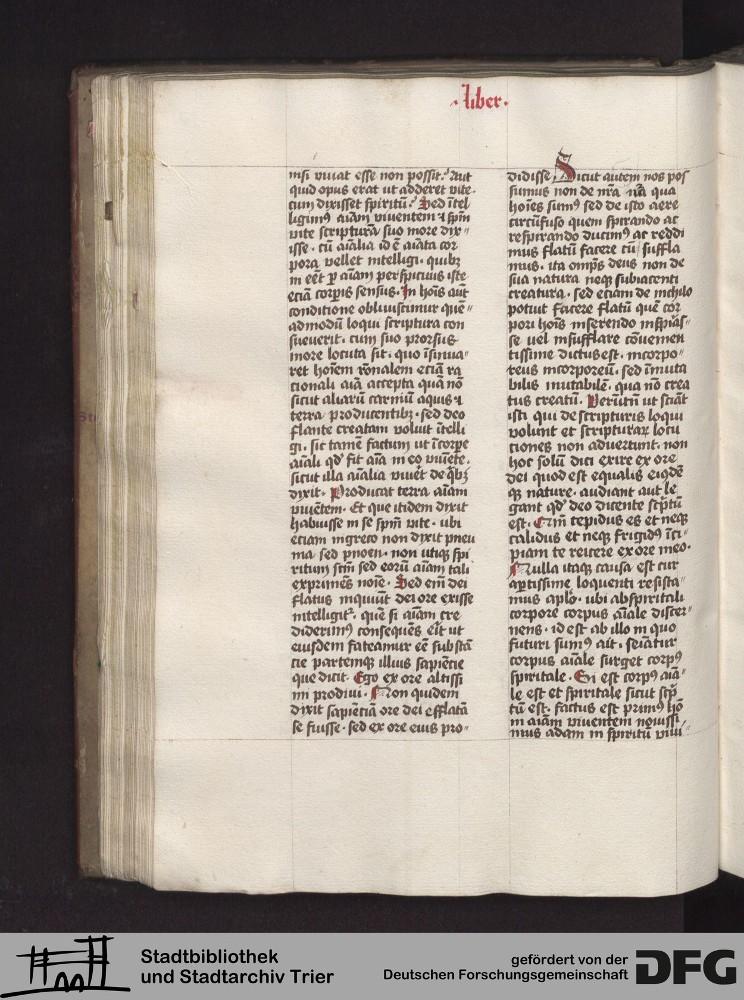 ·liber·
nisi viuat esse non possit. Aut
quid opus erat ut adderet vite·
cum dixisset spiritū. Sed ītel
ligimꝰ aīam viuentem ⁊ spm̄
vite scriptura suo more dix⸗
isse· cū aīalia id ē aīata cor
pora vellet intelligi· quibꝫ
in eēt ꝑ aīam perspicuus iste
eciā corpis sensus. In hoīs aūt
conditione obliuiscimur quē⸗
admodū loqui scriptura con
sueuerit· cum suo prorsus
more locuta sit· quo īsinua⸗
ret hoīem rōnalem eciā ra
cionali aīa accepta quā nō
sicut aliarū carniū aquis ⁊
terra producentibꝫ· sed deo
flante creatam voluit ītelli
gi· sic tamē factum ut ī corpe
aīali qd̓ fit aīa in eo viuēte·
sicut illa aīalia viuēt de qͥbꝫ
dixit· Producat terra aīam
viuētem· Et que itidem dixit
habuisse in se spm̄ vite· ubi
eciam in greco non dixit pneu
ma sed pnoen· non utiqꝫ spi
ritum scm̄ sed eorū aīam tali
exprimēs noīe· Sed em̄ dei
flatus inquiūt dei ore exisse
intelligitᷣ· que si aīam cre
diderimꝰ consequēs erit ut
eiusdem fateamur eē substā
cie partemqꝫ illius sapiētie
que dicit· Ego ex ore altissi
mi prodiui· Non quidem
dixit sapiētiā ore dei efflatā
se fuisse· sed ex ore eius pro⸗
didisse Sicut autem nos pos
sumus non de nr̄a nā qua
hoīes sumꝰ sed de isto aere
circūfuso quem spirando ac
respirando ducimꝰ ac reddi
mus flatū facere cū suffla
mus· ita omps̄ deus non de
sua natura neqꝫ subiacenti
creatura· sed eciam de nichilo
potuit facere flatū quē cor
pori hoīs inserendo inspiras⸗
se uel insufflare cōuenien
tissime dictus est· incorpo⸗
reus incorporeū· sed īmuta
bilis mutabilē· qua nō crea
tus creatū· Verūtn̄ ut sciāt
isti qui de scripturis loqui
volunt et scripturaꝝ locu
tiones non aduertunt· non
hoc solū dici exire ex ore
dei quod est equalis eiqdē
qꝫ nature· audiant aut le
gant qd̓ deo dicente sc̓ptū
est· Qm̄ tepidus es et neqꝫ
calidus et neqꝫ frigidꝰ īci⸗
piam te reicere ex ore meo·
Nulla itaqꝫ causa est cur
aꝑtissime loquenti resista⸗
mus aplo̓· ubi ab spiritali
corpore corpus aīale discer⸗
nens· id est ab illo in quo
futuri sumꝰ ait· Seīatur
corpus aīale surget corpꝰ
spiritale· Si est corpꝰ aīa⸗
le est et spiritale sicut scp̄
tū est· factus est primꝰ hō
in aīam viuentem nouissi
mus adam in spiritū viui⸗
Stadtbibliothek
und Stadtarchiv Trier
gefördert von der
Deutschen Forschungsgemeinschaft
DFG